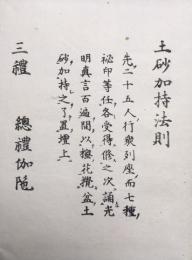 土砂加持法則
先二十五人行衆列座而七種
秘印等任各受得修之次誦光
明真言百遍間以樒花攪盆土
砂加持之了置壇上
三禮　總禮伽陀